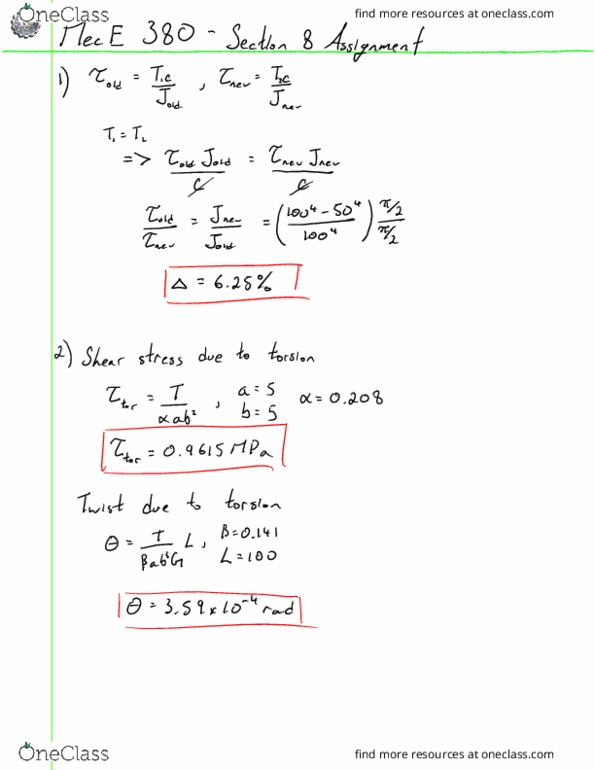 OneClass find more resources at oneclass.com
Mec E 380 - Section 8 Assignment
1) τold = T₁c/Jold , τnew = T₂c/Jnew
T₁ = T₂
=> τold Jold / c = τnew Jnew / c
τold/τnew = Jnew/Jold = ((100⁴ - 50⁴)/100⁴) (π/2)/(π/2)
Δ = 6.25%
2) Shear stress due to torsion
τtor = T/(αab²) , a = 5 b = 5 α = 0.208
τtor = 0.9615 MPa
Twist due to torsion
θ = T/(βab³G) L , β = 0.141 L = 100
θ = 3.59 × 10⁻⁴ rad
OneClass find more resources at oneclass.com